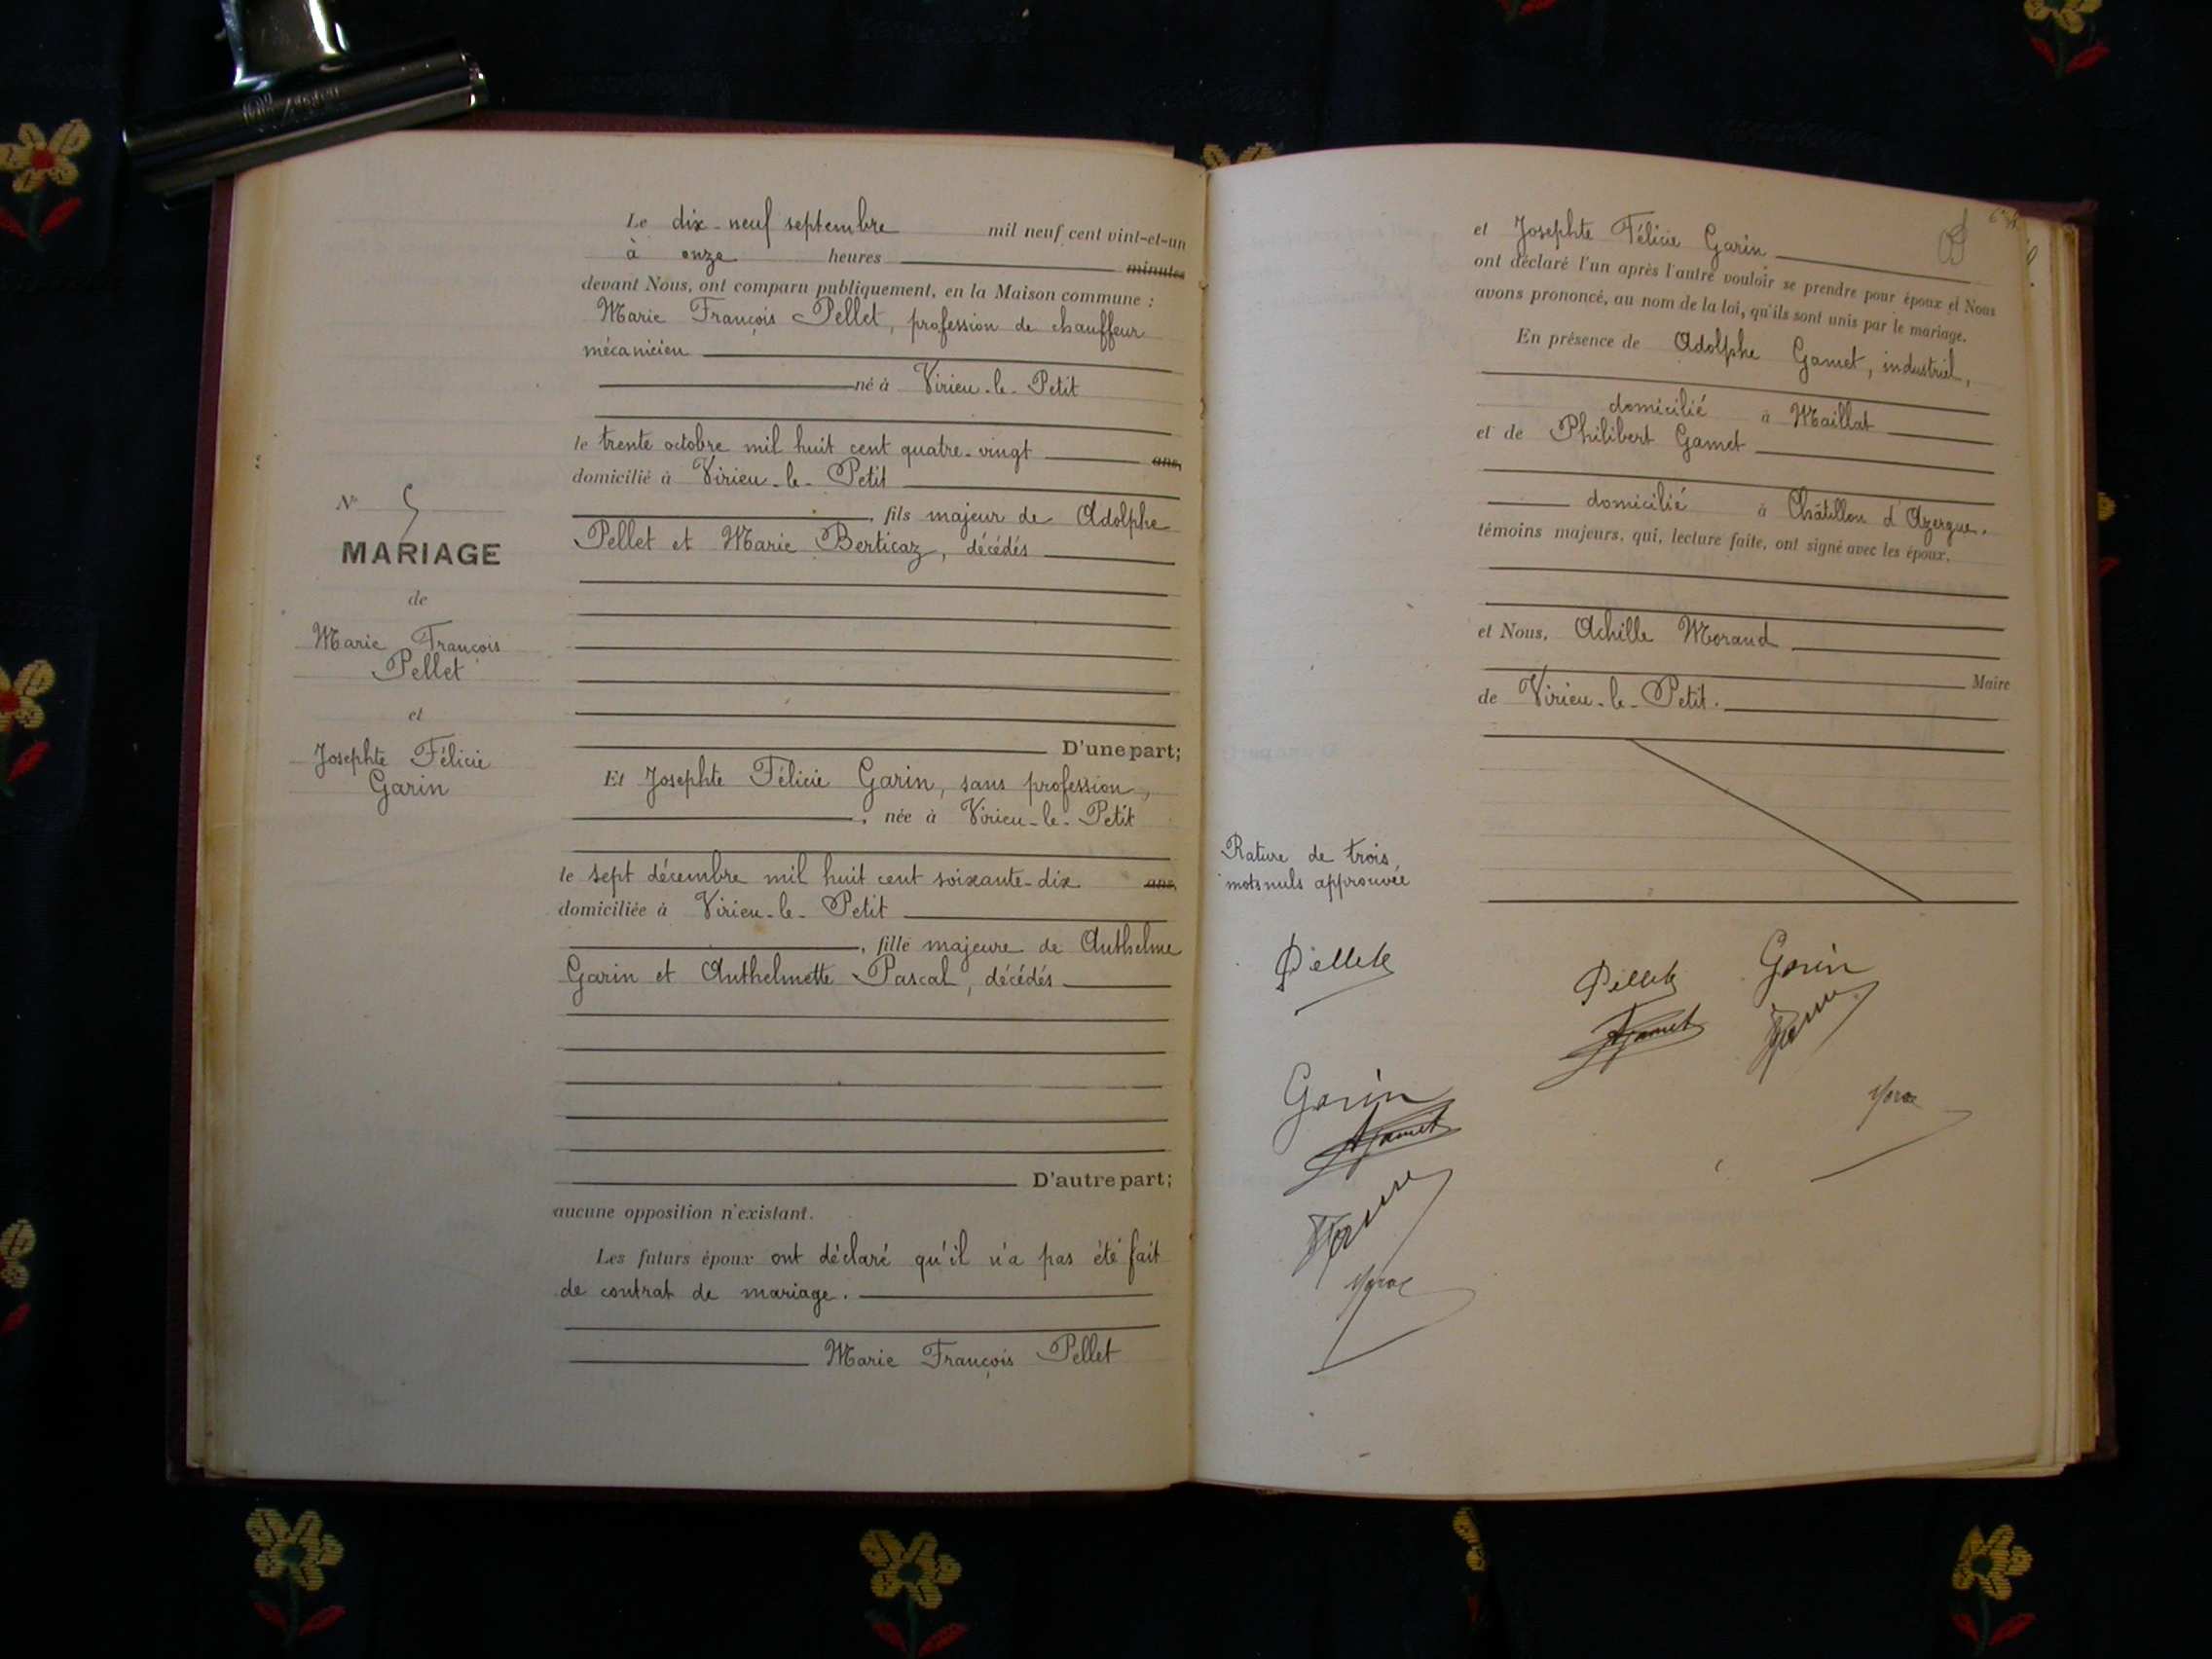 N° 5
MARIAGE
de
Marie François
Pellet
et
Josephte Félicie
Garin
Le dix-neuf septembre mil neuf cent vint-et-un
à onze heures minutes
devant Nous, ont comparu publiquement, en la Maison commune :
Marie François Pellet, profession de chauffeur
mécanicien
né à Virieu-le-Petit
le trente octobre mil huit cent quatre-vingt ans,
domicilié à Virieu-le-Petit
, fils majeur de Adolphe
Pellet et Marie Berticaz, décédés
D'une part;
Et Josephte Félicie Garin, sans profession,
, née à Virieu-le-Petit
le sept décembre mil huit cent soixante-dix ans,
domiciliée à Virieu-le-Petit
, fille majeure de Anthelme
Garin et Anthelmette Pascal, décédés
D'autre part;
aucune opposition n'existant.
Les futurs époux ont déclaré qu'il n'a pas été fait
de contrat de mariage.
Marie François Pellet
et Josephte Félicie Garin
ont déclaré l'un après l'autre vouloir se prendre pour époux et Nous
avons prononcé, au nom de la loi, qu'ils sont unis par le mariage.
En présence de Adolphe Gamet, industriel,
domicilié à Maillat
et de Philibert Gamet
domicilié à Châtillon d'Azergue.
témoins majeurs, qui, lecture faite, ont signé avec les époux.
et Nous, Achille Morand
Maire
de Virieu-le-Petit.
Rature de trois
mots nuls approuvée
Pellet
Pellet
Garin
AGamet
Garin
AGamet